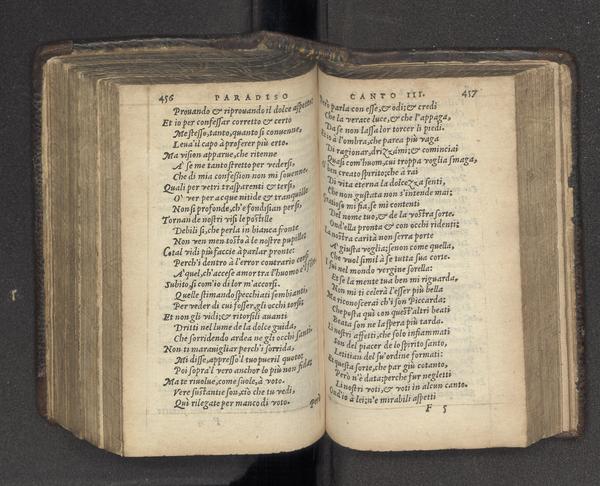 456 PARADISO
Prouando & riprouando il dolce aspetto:
Et io per confessar corretto & certo
Me stesso, tanto, quanto si conuenne,
Leuai il capo à proferer più erto.
Ma vision apparue, che ritenne
A se me tanto stretto per vedersi,
Che di mia confession non mi souenne.
Quali per vetri trasparenti & tersi,
O' ver per acque nitide & tranquille
Non si profonde, ch'e fondi sian persi,
Tornan de nostri visi le postille
Debili si, che perla in bianca fronte
Non ven men tosto à le nostre pupille;
Cotal vidi più faccie à parlar pronte:
Perch'i dentro à l'error contrario corsi
A' quel, ch'accese amor tra l'huomo e'l
Subito, si com'io di lor m'accorsi,
Quelle stimando specchiati sembianti,
Per veder di cui fosser, gli occhi torsi;
Et non gli vidi; & ritorsili auanti
Dritti nel lume de la dolce guida,
Che sorridendo ardea ne gli occhi santi.
Non ti marauigliar perch'i sorrida,
Mi disse, appresso'l tuo pueril quoto;
Poi sopra'l vero anchor lo piè non fida;
Ma te riuolue, come suole, à voto.
Vere sustantie son, ciò che tu vedi,
Qui rilegate per manco di voto.
Però
CANTO III. 457
Però parla con esse, & odi; & credi
Che la verace luce, & che l'appaga,
Da se non lassa lor torcer li piedi.
Et io à l'ombra, che parea più vaga
Di ragionar, drizzàmi; & cominciai
Quasi com'huom, cui troppa voglia smaga,
O ben creato spirito; che à rai
Di vita eterna la dolcezza senti,
Che non gustata non s'intende mai;
Gratioso mi fia, se mi contenti
Del nome tuo, & de la vostra sorte.
Ond'ella pronta & con occhi ridenti;
La nostra carità non serra porte
A giusta voglia; senon come quella,
Che vuol simil à se tutta sua corte.
I fui nel mondo vergine sorella:
Et se la mente tua ben mi riguarda,
Non mi ti celerà l'esser più bella
Ma riconoscerai ch'i son Piccarda;
Che posta quì con quest'altri beati
Beata son ne la spera più tarda.
Li nostri affetti, che solo infiammati
Son del piacer de lo spirito santo,
Letitian del su' ordine formati:
Et questa sorte, che par giù cotanto,
Però n'è data; perche fur negletti
Li nostri voti, & voti in alcun canto.
Ond'io à lei; n'e mirabili aspetti
F 5